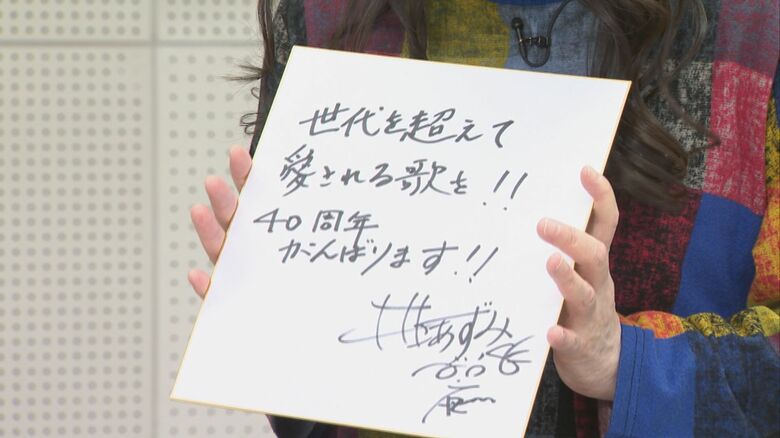 世代を超えて
愛される歌を!!
40周年
がんばります!!
井上あずみ